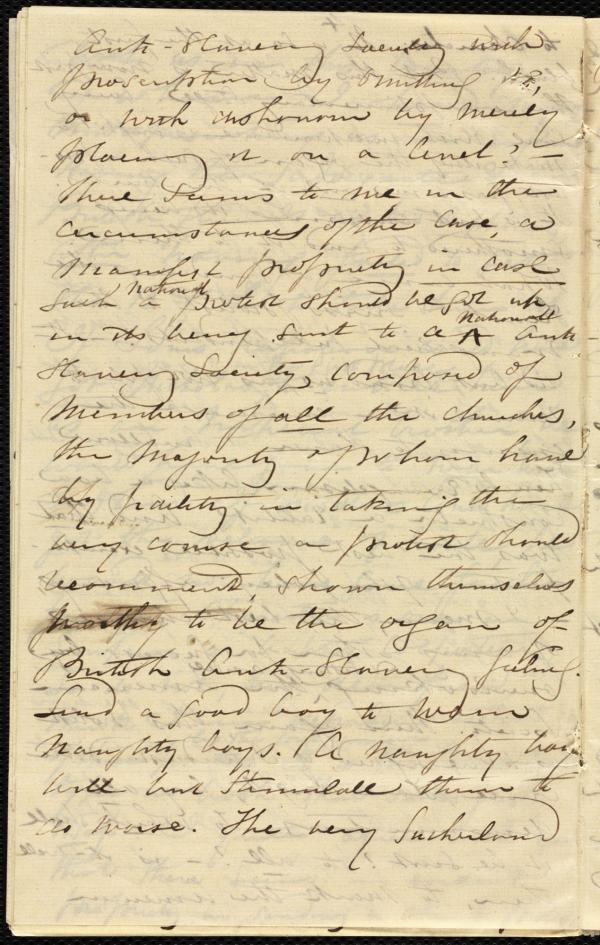 Anti-Slavery Society with
proscription by omitting it,
or with dishonour by merely
placing it on a level? –
There seems to me, in the
circumstances of the case, a
manifest propriety in case
such a National protest should be got up
in its being sent to a National Anti-
Slavery Society, composed of
members of all the churches,
the majority of whom have
by in taking the
very course a protest should
recommend, shown themselves
worthy to be the organ of
British Anti-Slavery feeling.
Send a good boy to warn
naughty boys. A naughty boy
will but stimulate them to
do worse. The very Sutherland